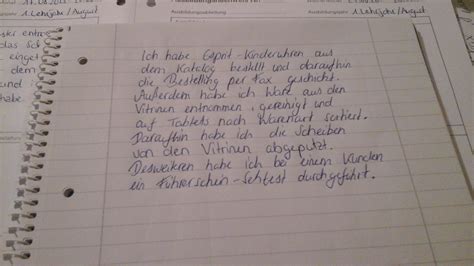 1 Lehrjahr / August
1 Lehrjahr / August
Ich habe Esprit-Kinderuhren aus
dem Katalog bestellt und daraufhin
die Bestellung per Fax geschickt.
Außerdem habe ich Ware aus den
Vitrinen entnommen, gereinigt und
auf Tabletts nach Warenart sortiert.
Daraufhin habe ich die Scheiben
von den Vitrinen abgeputzt.
Desweiteren habe ich bei einem Kunden
ein Führerschein-Sehtest durchgeführt.